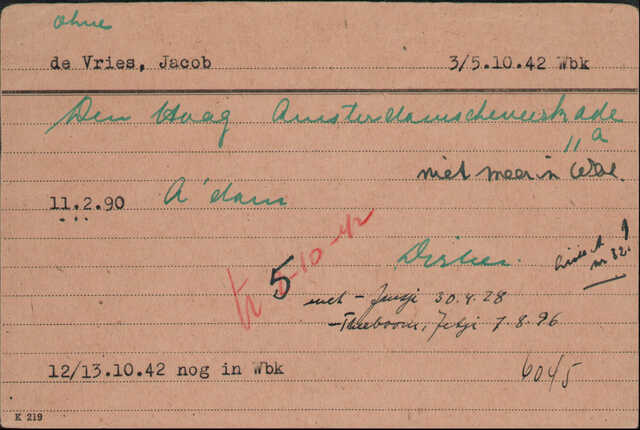 ohne
de Vries, Jacob 3/5.10.42 Wbk
Den Haag Amsterdamscheveerkade
11 a
niet meer in Wbk.
11.2.90 A'dam
tr 5-10-42
5
met - Juusje 30.4.28
- Theeboom, Jetje 7.8.96
nr 82.
12/13.10.42 nog in Wbk 6045
K 219